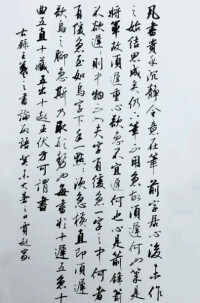 凡書貴乎沉静令意在筆前字居心後未作
之始结思成矣仍下筆不用急故須遲何也筆是
將軍故須遲重心欲急不宜遲何也心是箭鋒箭
不欲遲遲則中物不入夫字有缓急一字之中何者
有缓急至如烏字下手一點點須急横直即須遲
欲烏之脚急斯乃取形勢也每書欲十遲五急十
曲五直十藏五出十起五伏方可謂書
右録王羲之書論